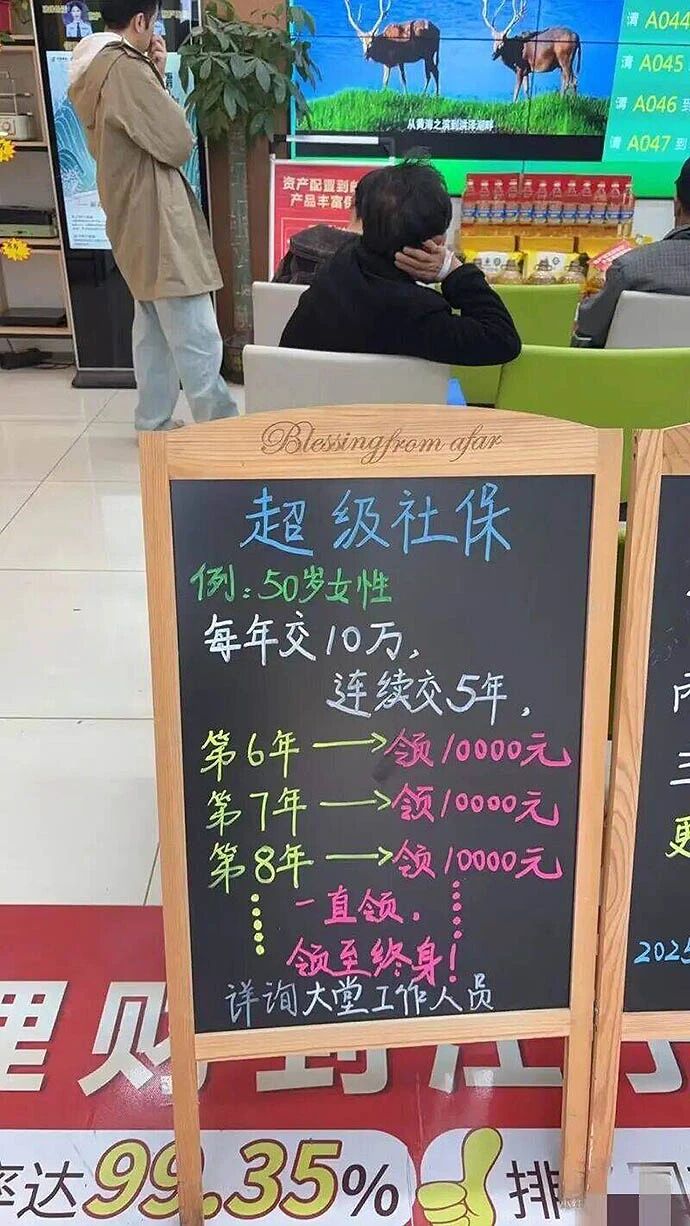 从黄海之滨到洪泽湖畔
请 A044
请 A045
请 A046 到
请 A047 到
资产配置到
产品丰富
Blessing from afar
超级社保
例：50岁女性
每年交10万，
连续交5年，
第6年→领10000元
第7年→领10000元
第8年→领10000元
一直领，
领至终身！
详询大堂工作人员
内
三
更
2025
理财到江
率达99.35%
排